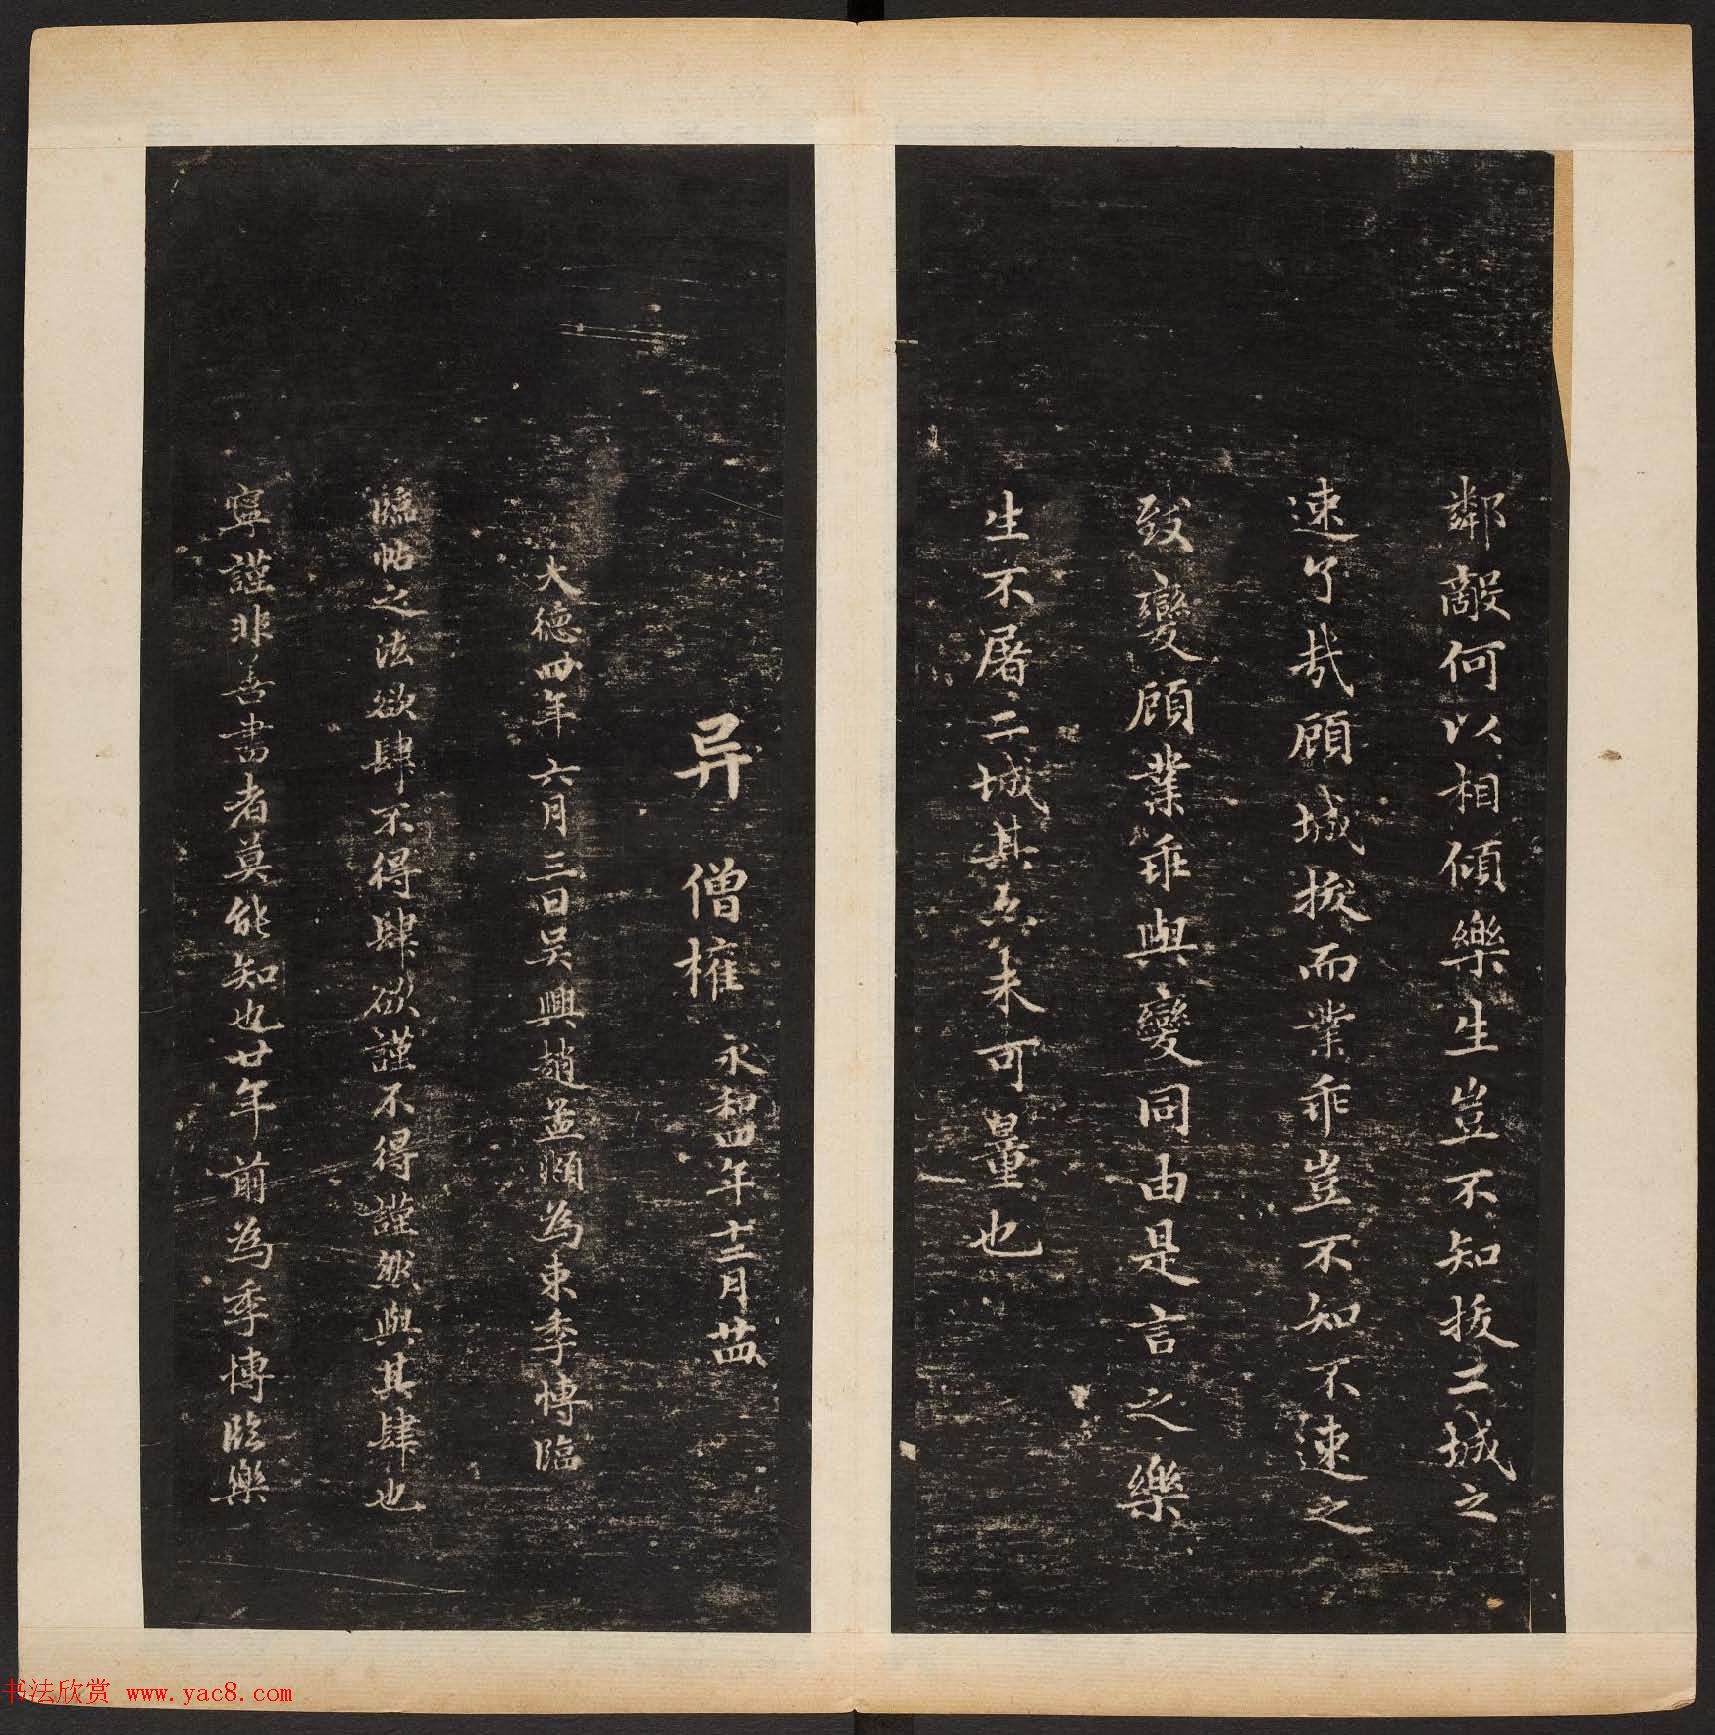 鄰敵何以相傾樂生豈不知拔二城之
速了哉顧城拔而業乖豈不知不速之
致變顧業乖與變同由是言之樂
生不屠二城其亦未可量也
异 僧權 永和四年十二月廿四
大德四年六月三日吳興趙孟頫為束季博臨
臨帖之法欲肆不得肆欲謹不得謹然與其肆也
寧謹非善書者莫能知也廿年前為季博臨樂
书法欣赏 www.yac8.com